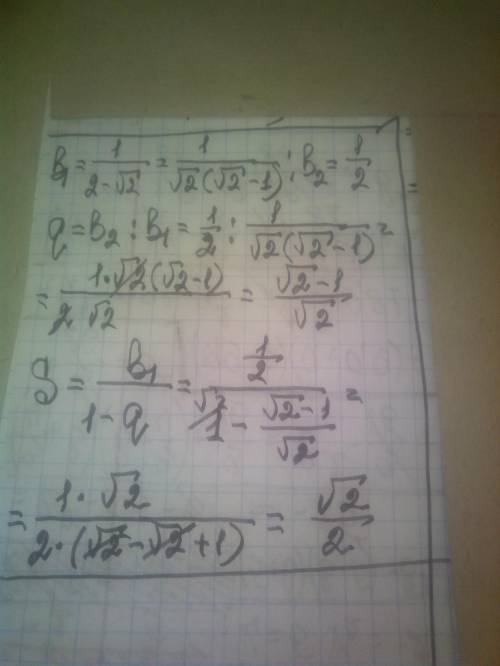 b₁ = 1/(2-√2) = 1/(√2(√2-1)); b₂ = 1/2
q = b₂ : b₁ = 1/2 : 1/(√2(√2-1)) =
= 1·√2(√2-1)/(2 √2) = (√2-1)/√2
S = b₁/(1-q) = (1/2)/(1 - (√2-1)/√2) =
= 1·√2/(2·(√2-√2+1)) = √2/2